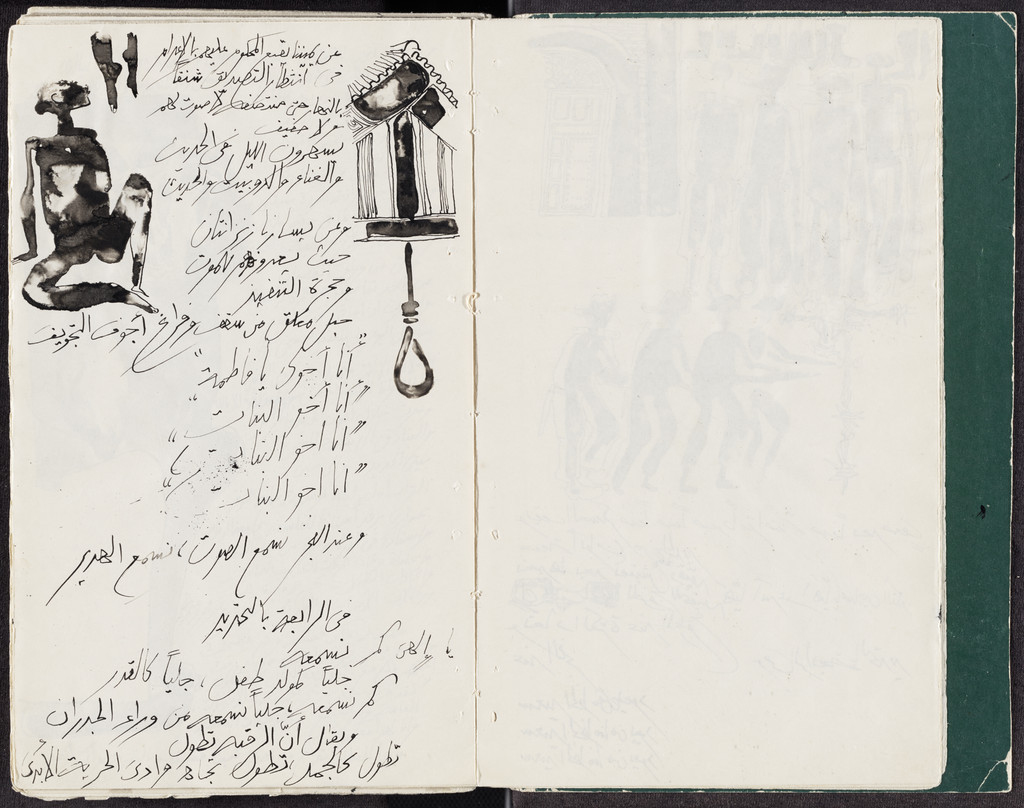 عن يميننا يقبع المحكوم عليهم بالإعدام
في انتظار التصديق شنقاً
بالنهار حتى منتصفه لا صوت لهم
ولا حفيف
يسهرون الليل في الحديث
والغناء والدوبيت والحديث
وعن يسارنا زنزانتان
حيث يعدونهم للموت
وحجرة التنفيذ
حبل معلق من سقف وفراغ أجوف التجويف
"أنا أخوك يا فاطمة"
"أنا أخو البنات"
"أنا أخو البنات"
"أنا أخو البنات"
وعند الفجر نسمع الصوت، نسمع الهدير
في الرابعة بالتحديد
يا إلهي كم نسمعه
جلياً كمولد طفل، جلياً كالقدر
كم نسمعه جلياً نسمعه من وراء الجدران
ويقال أنّ الرقبة تطول
تطول كالجمل، تطول تجاه وادي الحرية الأبدي